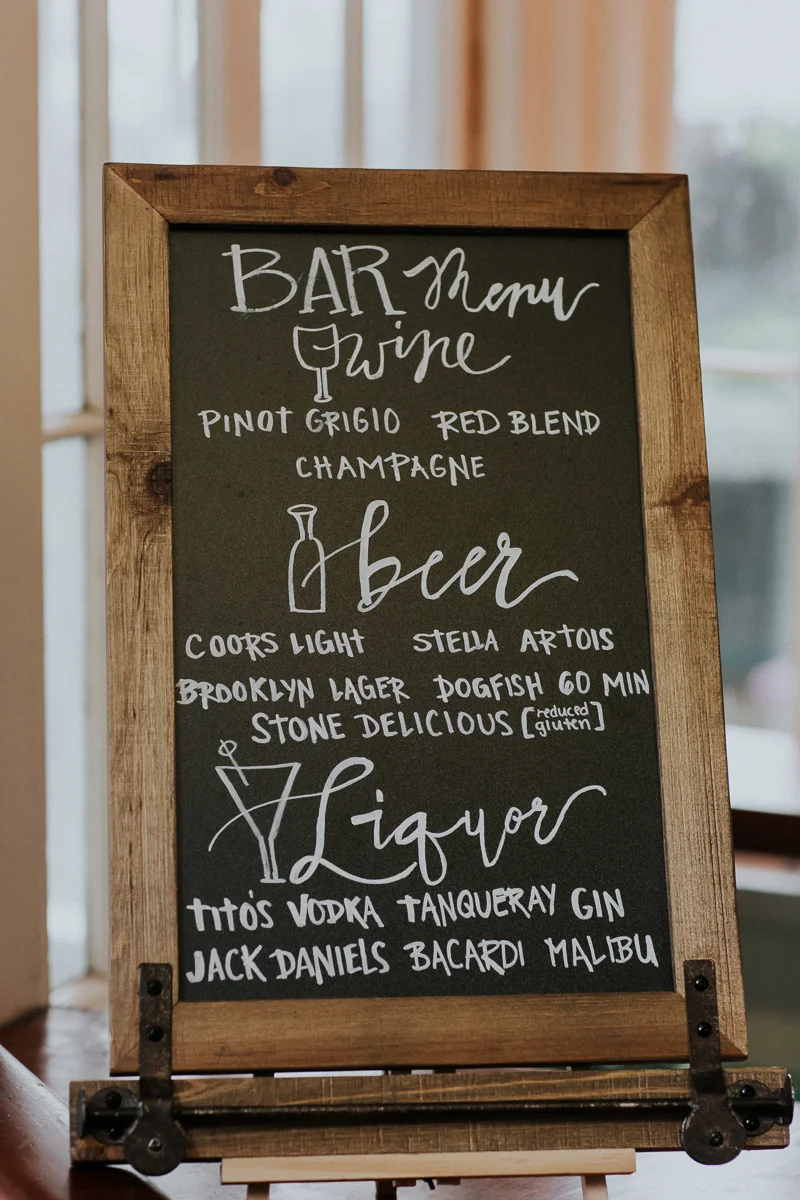 BAR Menu
wine
PINOT GRIGIO RED BLEND
CHAMPAGNE
beer
COORS LIGHT STELLA ARTOIS
BROOKLYN LAGER DOGFISH 60 MIN
STONE DELICIOUS [reduced gluten]
Liquor
TITO'S VODKA TANQUERAY GIN
JACK DANIELS BACARDI MALIBU